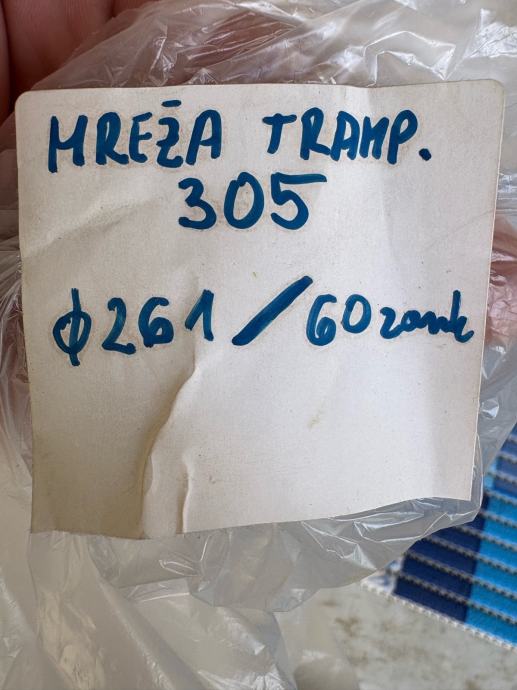 MREŽA TRAMP.
305
φ261/60 zank